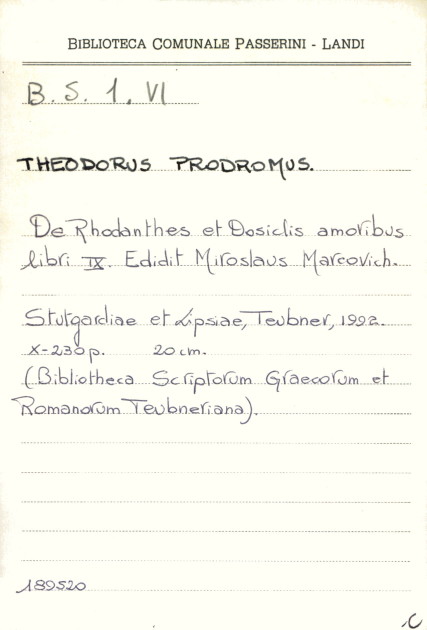 BIBLIOTECA COMUNALE PASSERINI - LANDI
B. S. 1. VI
THEODORUS PRODROMUS.
De Rhodanthes et Dosiclis amoribus
libri IX. Edidit Miroslaus Marcovich.
Stutgardiae et Lipsiae, Teubner, 1992.
X-230p. 20 cm.
(Bibliotheca Scriptorum Graecorum et
Romanorum Teubneriana).
189520
C